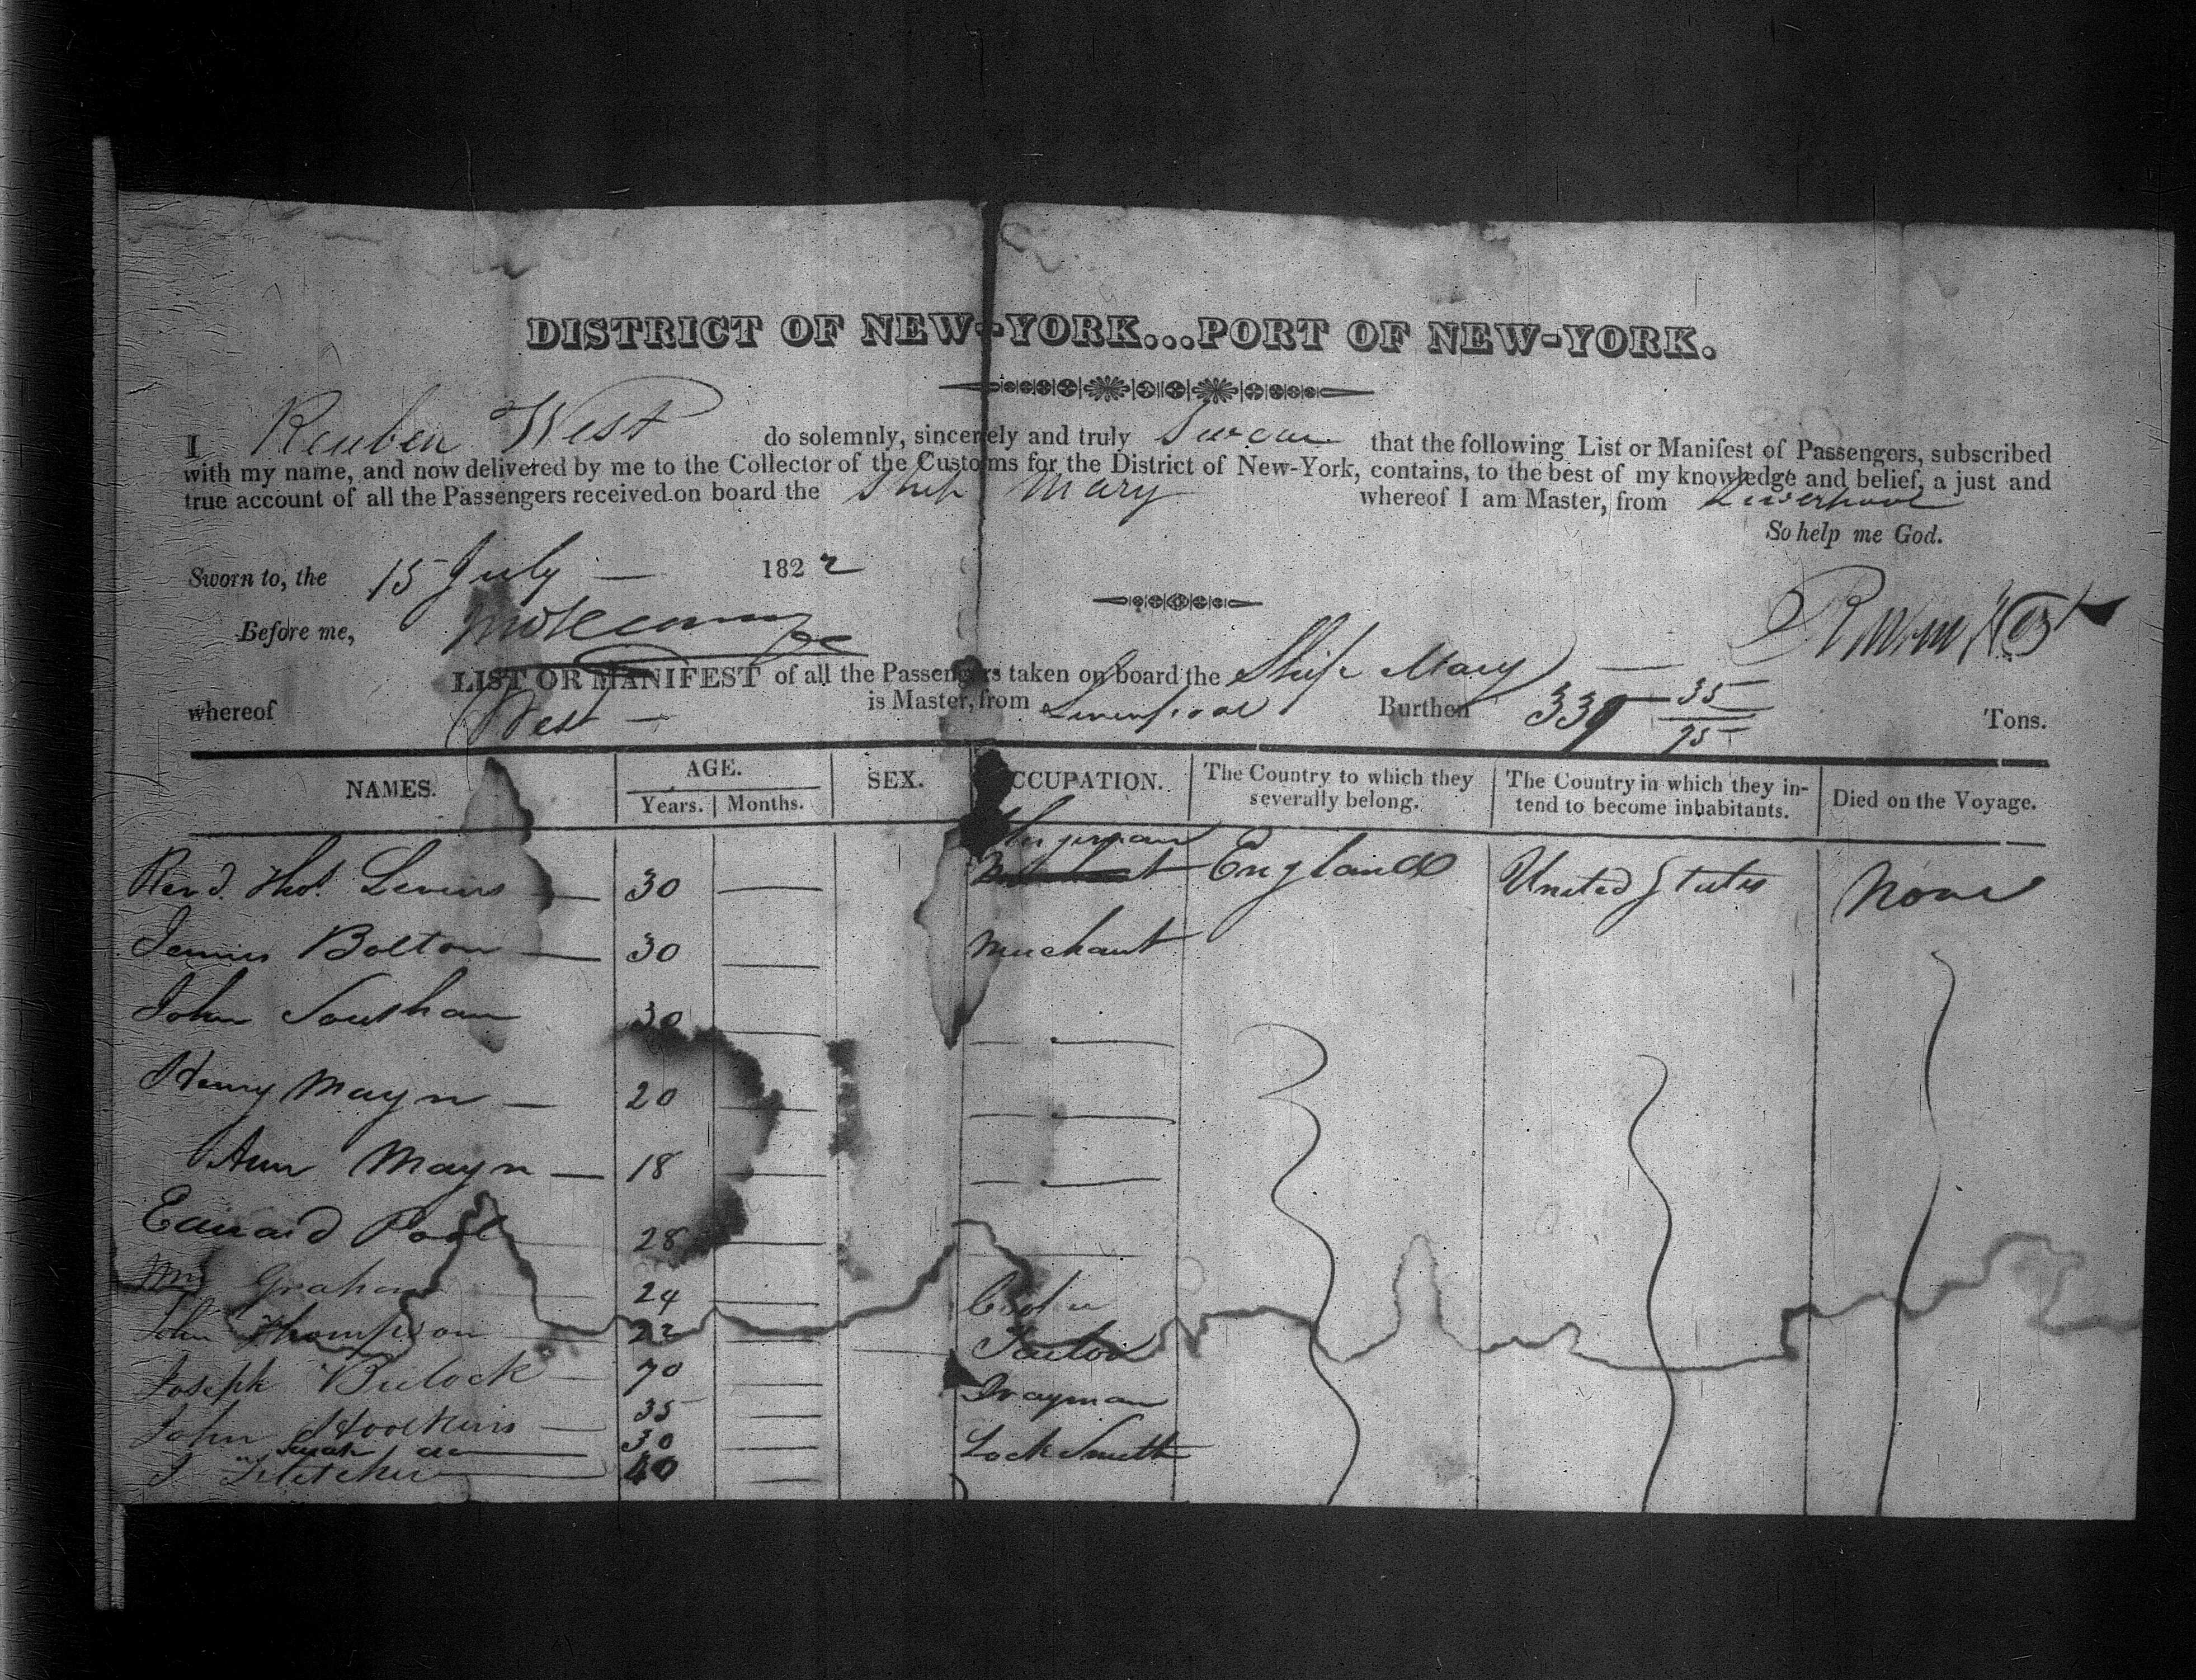 DISTRICT OF NEW-YORK...PORT OF NEW-YORK.
I Reuben West do solemnly, sincerely and truly Swear that the following List or Manifest of Passengers, subscribed
with my name, and now delivered by me to the Collector of the Customs for the District of New-York, contains, to the best of my knowledge and belief, a just and
true account of all the Passengers received on board the Ship Mary whereof I am Master, from Liverpool
So help me God.
Sworn to, the 15 July — 1822
Before me,
Reuben West
LIST OR MANIFEST of all the Passengers taken on board the Ship Mary —
whereof West — is Master, from Liverpool Burthen 339 35/95 Tons.
NAMES. AGE. SEX. OCCUPATION. The Country to which they severally belong. The Country in which they intend to become inhabitants. Died on the Voyage.
Years. Months.
Revd. Thos. Levins — 30 — England United States None
James Bolton — 30 — Merchant
John 30 —
Henry Mayn — 20 —
Ann Mayn — 18 —
Edward Pool 28 —
Graham 24 —
John Thompson 22 — Tailor
Joseph Bulock — 70 — Drayman
John Hookins — 35 —
Sarah do — 30 — Lock Smith
J Fletcher — 40 —